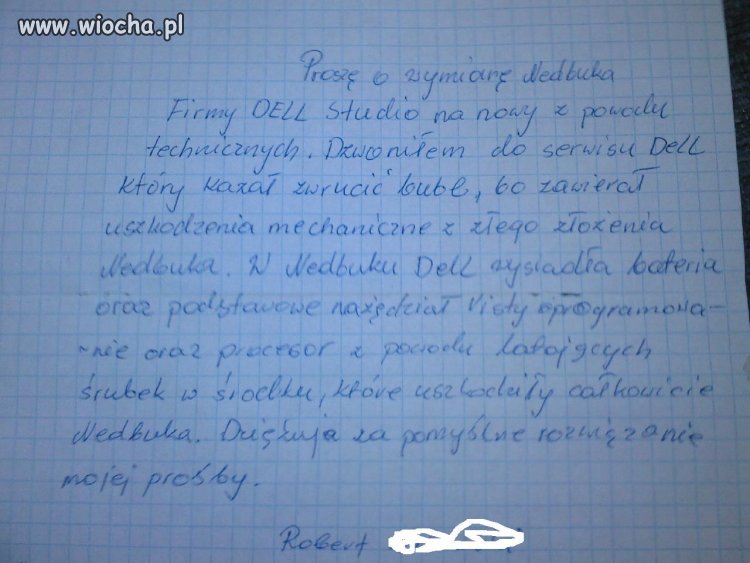 www.wiocha.pl
Proszę o wymianę Nedbuka
Firmy DELL Studio na nowy z powodu
technicznych. Dzwoniłem do serwisu Dell
który kazał zwrucić bubl, bo zawierał
uszkodzenia mechaniczne z złego złożenia
Nedbuka. W Nedbuku Dell wysiadła bateria
oraz podstawowe nażędział Visty oprogramowa-
-nie oraz procesor z powodu latających
śrubek w środku, które uszkodziły całkowicie
Nedbuka. Dziękuja za pomyślne rozwiązanie
mojej prośby.
Robert